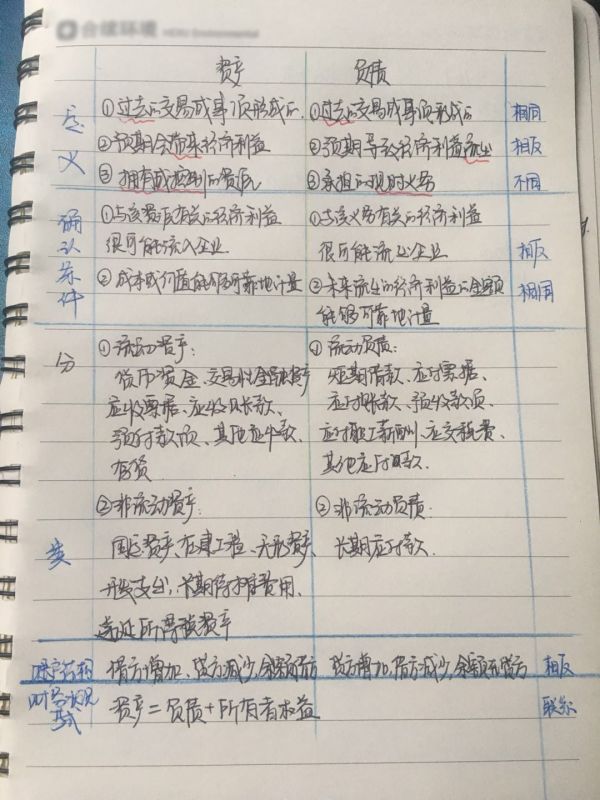 合续环境 HEXU Environmental
资产 负债
定义
①过去的交易或事项形成的 ①过去的交易或事项形成的 相同
②预期会带来经济利益 ②预期导致经济利益流出 相反
③拥有或控制的资源 ③承担的现时义务 不同
确认条件
①与该资源有关的经济利益 ①与该义务有关的经济利益
很可能流入企业 很可能流出企业 相反
②成本或价值能够可靠地计量 ②未来流出的经济利益的金额 相同
能够可靠地计量
分类
①流动资产: ①流动负债:
货币资金、交易性金融资产 短期借款、应付票据、
应收票据、应收账款、 应付账款、预收款项、
预付款项、其他应收款、 应付职工薪酬、应交税费、
存货 其他应付款.
②非流动资产: ②非流动负债:
固定资产、在建工程、无形资产、 长期应付款.
开发支出、长期待摊费用、
递延所得税资产
借方增加、贷方减少,余额在借方 贷方增加,借方减少,余额在贷方 相反
财务状况等式 资产=负债+所有者权益 联系